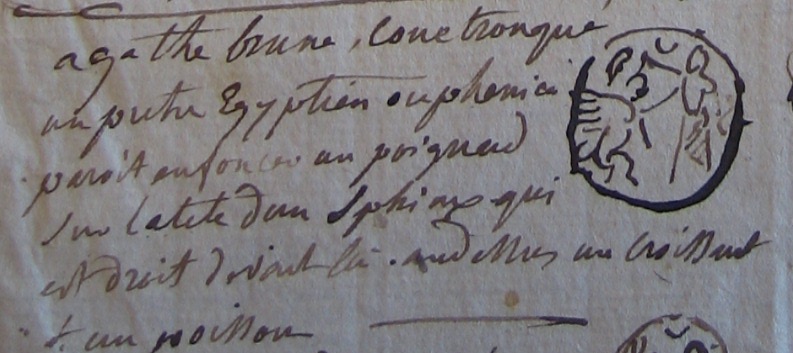 agathe brune, cone tronqué
un pretre Egyptien ou phenici
paroit enfoncer un poignard
sur la tete d'un Sphinx qui
est droit devant lui. au dessus un croissant
& un poisson